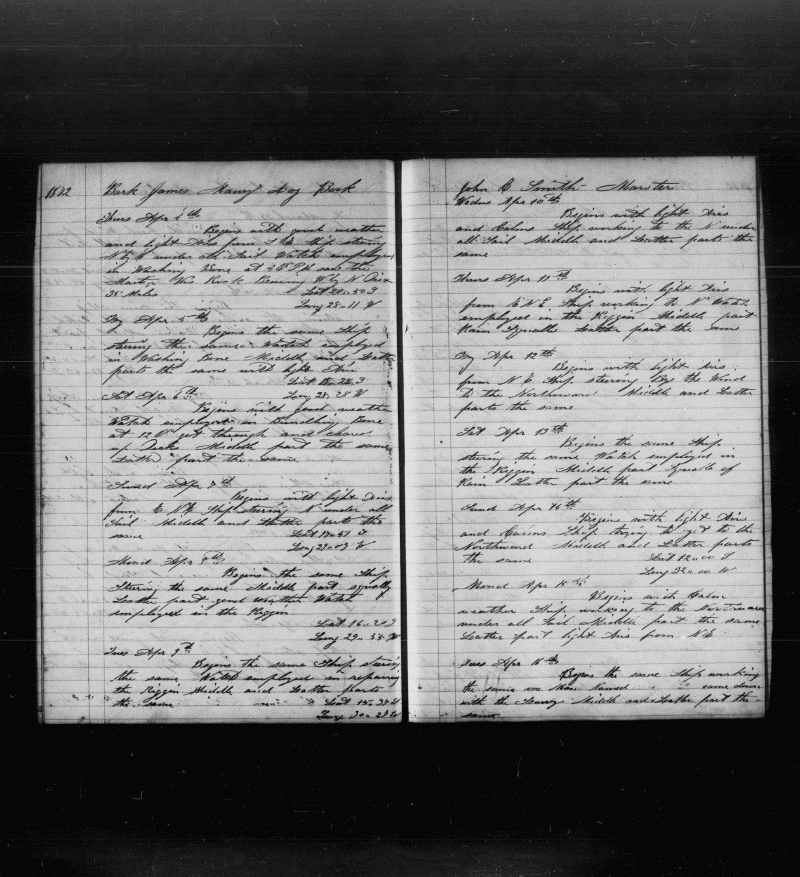 1872
Bark James Maury Log Book
Thurs Apr 4th
Begins with good weather
and light Airs from S E Ship steering
N by W under all Sail Watch employed
in Washing Bone at 3 P M saw the
Martin Vas Rock Bearing W by N Dist
35 Miles Lat 20.50 S
Long 28.11 W
Fry Apr 5th
Begins the same Ship
steering the same Watch employed
in Washing Bone Middle and Latter
parts the same with light Airs
Lat 18.28 S
Long 28.28 W
Sat Apr 6th
Begins with good weather
Watch employed in Bundling Bone
at 12 got through and cleared
up Deck Middle part the same
Latter part the same
Sund Apr 7th
Begins with light Airs
from E N E Ship steering N under all
Sail Middle and Latter parts the
same Lat 17.51 S
Long 29.09 W
Mond Apr 8th
Begins the same Ship
Steering the same Middle part squally
Latter part good weather Watch
employed in the Riggin
Lat 16.20 S
Long 29.53 W
Tues Apr 9th
Begins the same Ship steering
the same Watch employed in repairing
the Riggin Middle and Latter parts
the same Lat 15.38 S
Long 30.28 W
John C Smith Marster
Wednes Apr 10th
Begins with light Airs
and Calms Ship working to the N under
all Sail Middle and Latter parts the
same
Thurs Apr 11th
Begins with light Airs
from E N E Ship working to N Watch
employed in the Riggin Middle part
Rain Squalls Latter part the same
Fry Apr 12th
Begins with light Airs
from N E Ship steering Bye the Wind
to the Northward Middle and Latter
parts the same
Sat Apr 13th
Begins the same Ship
steering the same Watch employed in
the Riggin Middle part Squalls of
Rain Latter part the same
Sund Apr 14th
Begins with light Airs
and Calms Ship trying to get to the
Northward Middle and Latter parts
the same Lat 12.00 S
Long 32.00 W
Mond Apr 15th
Begins with Calm
weather Ship working to the Northward
under all Sail Middle part the same
Latter part light Airs from N E
Tues Apr 16th
Begins the same Ship working
the same came down
with the Middle and Latter part the
same